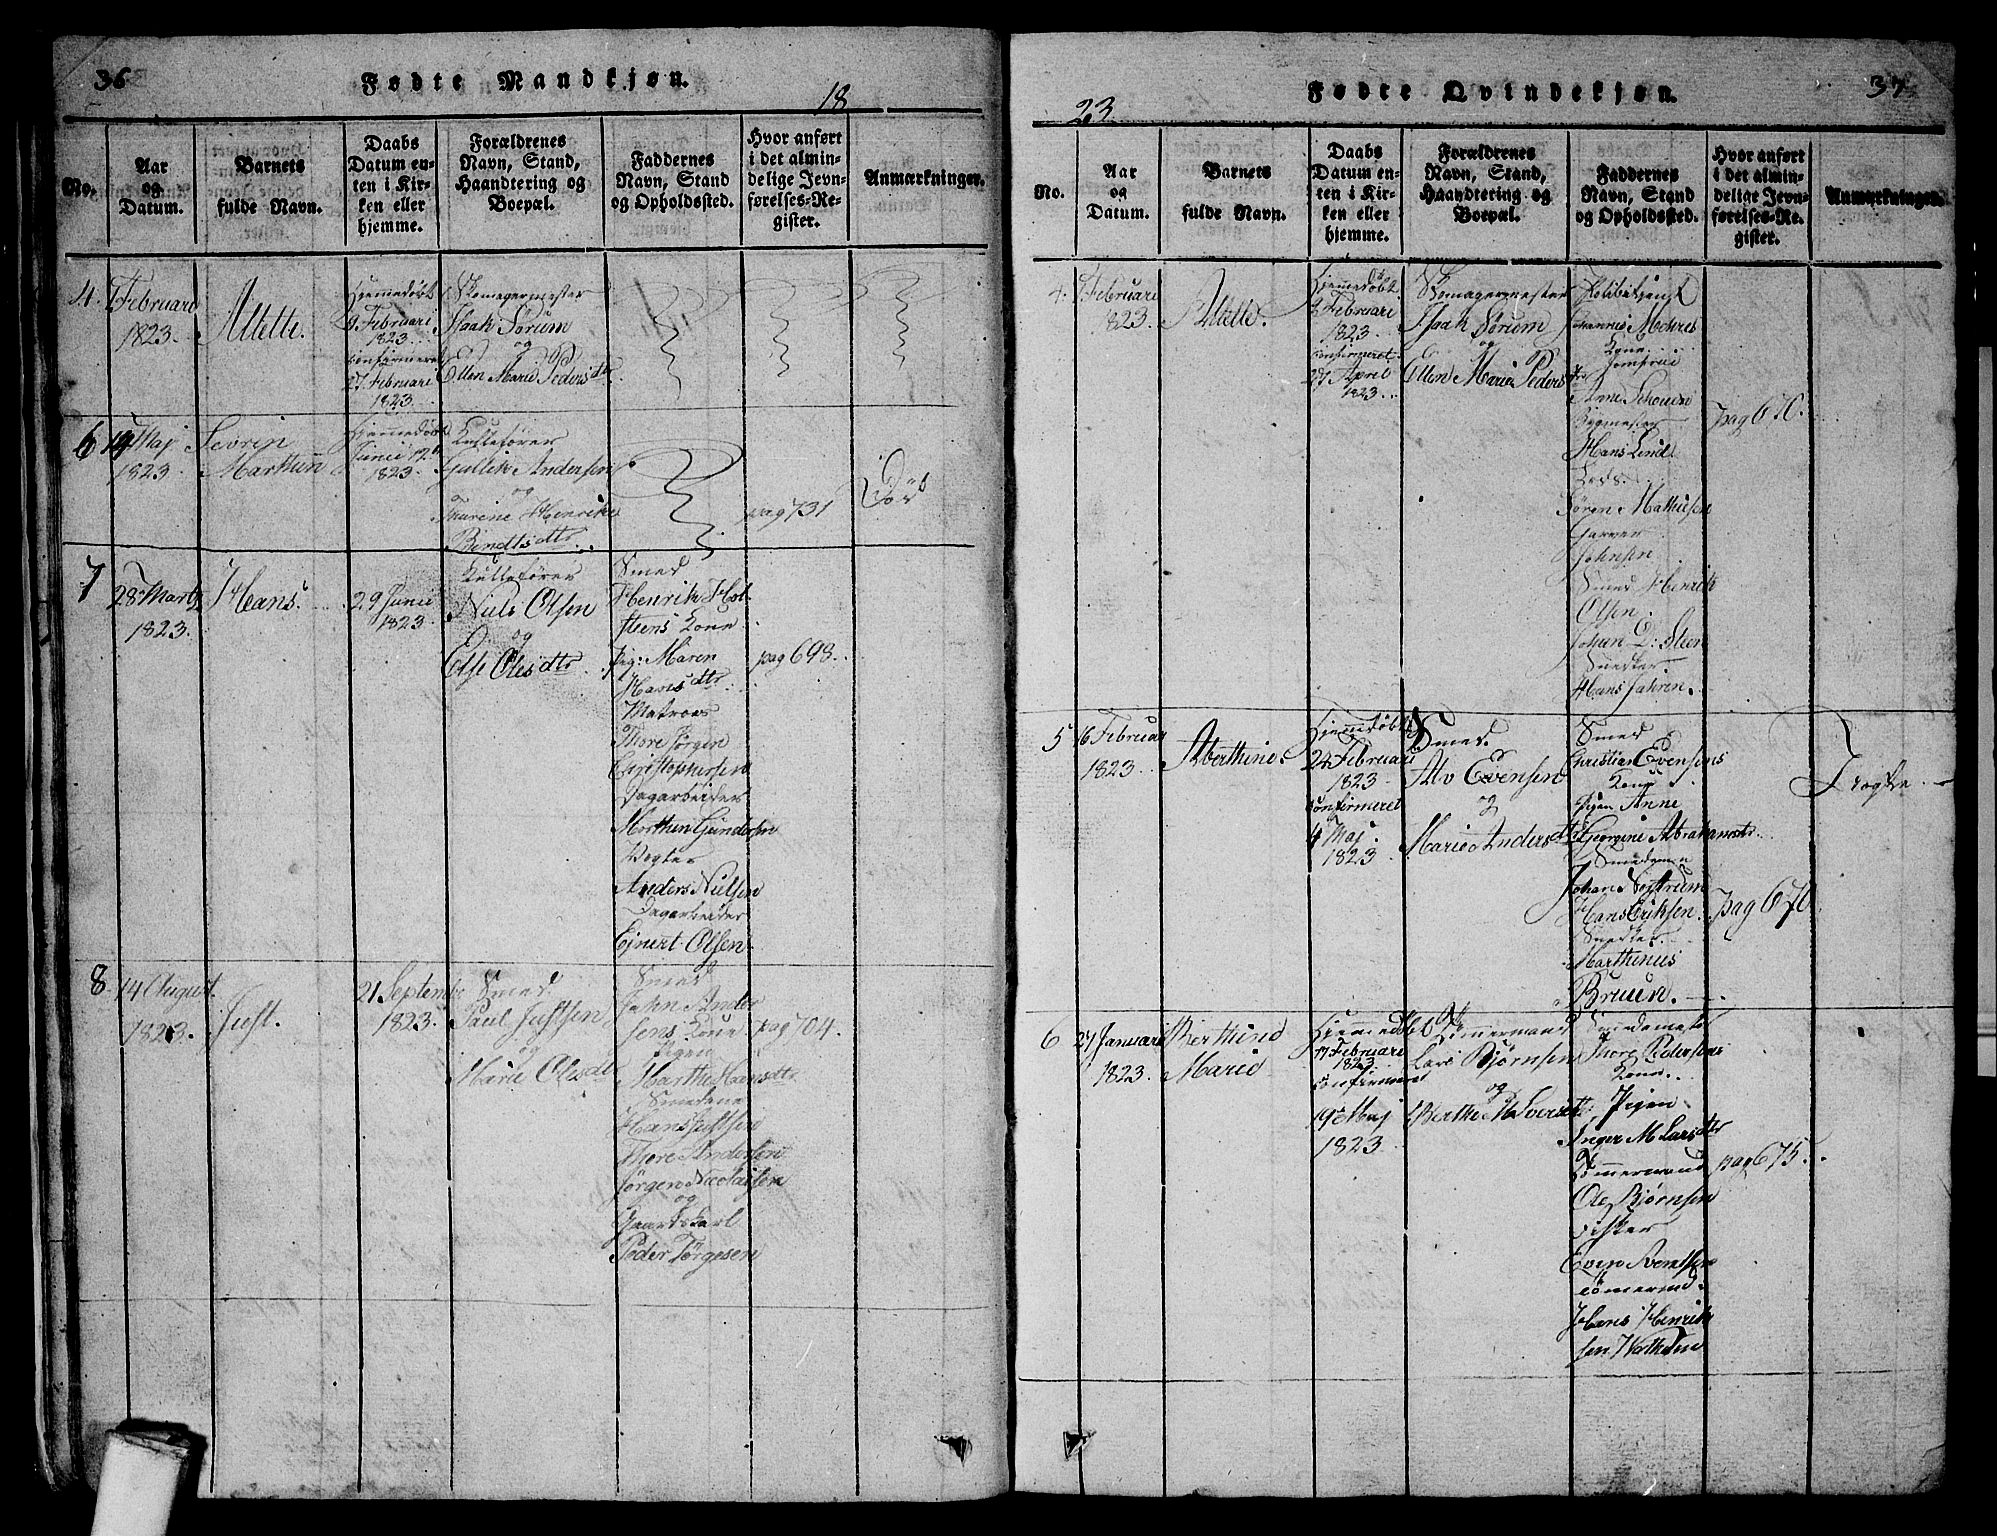 36
Fødte Mandkjøn.
18
No.
Aar
og
Datum.
Barnets
fulde Navn.
Daabs
Datum en-
ten i Kir-
ken eller
hjemme.
Forældrenes
Navn, Stand,
Haandtering og
Boepæl.
Faddernes
Navn, Stand
og Opholdssted.
Hvor anført
i det almin-
delige Jevn-
førelses-Re-
gister.
Anmærkninger.
4.
Februari
1823.
Altette.
Hjemmedøbt
9 Februari
1823
confirmeret
27 Februari
1823
Skomagermester
Isaak Sørum
og
Ellen Marie Pedersdtr
6
Maj
1823
Sevrin
Marthin
Hjemmedøbt
Junii 12
1823.
Kullefører
Gullik Andersen
og
Henrike
Bendtsdtr
pag 731
Død
7
28 Marty
1823.
Hans.
29 Junii
1823
Kullefører
Niels Olsen
og
Else Olesdtr
Smed
Henrik Hol-
steens Kone
pig: Maren
Hansdtr
Matroes
Thore Jørgen
Christophersen
Dagarbeider
Morthen Gundersen
Vogter
Anders Nielsen
Dagarbeider
Ejnert Olsen
pag 698.
8
14 August
1823.
Just.
21 Septembr
1823.
Smed
Paul Justsen
og
Marie Olesdtr
Smed
John Ander
sens Kone
Pigen
Marthe Hansdtr
Smedene
Hans Justsen
Thore Andersen
Jørgen Nicolaisen
og
Gaardskarl
Peder Tørgesen
pag 704.
37
Fødte Qvindekjøn.
23
No.
Aar
og
Datum.
Barnets
fulde Navn.
Daabs
Datum en-
ten i Kir-
ken eller
hjemme.
Forældrenes
Navn, Stand,
Haandtering og
Boepæl.
Faddernes
Navn, Stand
og Opholdssted.
Hvor anført
i det almin-
delige Jevn-
førelses-Re-
gister.
Anmærkninger.
4.
Februari
1823.
Altette.
Hjemmedøbt
9 Februari
1823
confirmeret
27 April
1823
Skomagermester
Isaak Sørum
og
Ellen Marie Pedersdtr
Politibetjent
Johannes Mohres
Kone
Jomfrue
Anne Schouen
Bygmester
Hans Lind
Søren Mathisen
Garver
Johnsen
Smed Henrik
Olsen
Johan D: Steen
Snedker
Hans Jahren.
pag 670.
5
16 Februar
1823
Aberthine.
Hjemmedøbt
24 Februari
1823
confirmeret
4 Maj
1823
Smed
Alv Evensen
og
Marie Andersdtr
Smed
Christian Evensens
Kone
Pigen Anne
Georgine Abrahamsdtr
Smedene
Johan Nystrum
Hans Eriksen.
Snedker
Marthinus
Bruun.
pag 670
6
27 Januari
1823.
Berthine
Marie
Hjemmedøbt
17 Februari
1823
confirmeret
19de Maj
1823
Tømmermand
Lars Bjørnsen
og
Berthe M Iversdtr
Smedemester
Thore Pedersens
Kone
Pigen
Inger M Larsdtr
Tømmermand
Ole Bjørnsen
Fisker
Even Berntsen
Tømermd.
Hans Henrik
sen
pag 675.